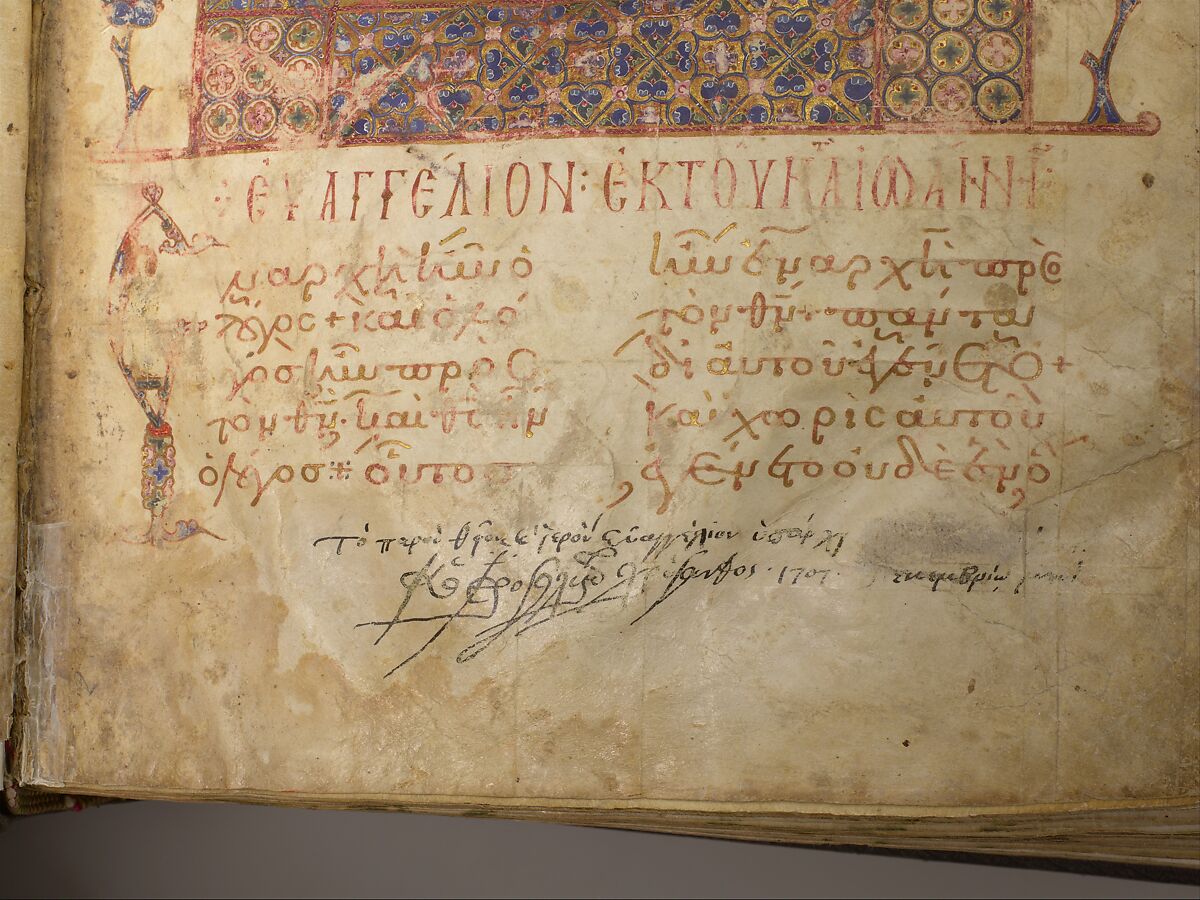 ΕΥΑΓΓΕΛΙΟΝ: ΕΚ ΤΟΥ ΚΑΤΑ ΙΩΑΝΝ
Ἐν ἀρχῇ ἦν ὁ
λόγος + καὶ ὁ λό
γος ἦν πρὸς
τὸν θν· καὶ θς ἦν
ὁ λόγος ⁜ οὗτος
ἦν ἐν ἀρχῇ πρὸς
τὸν θν· πάντα
δι αὐτοῦ ἐγένετο +
καὶ χωρὶς αὐτοῦ
ἐγένετο οὐδὲ ἕν ὃ
Τὸ παρὸν θεῖον κ ἱερὸν εὐαγγέλιον ὑπάρχει
Χρύσανθος · 1707